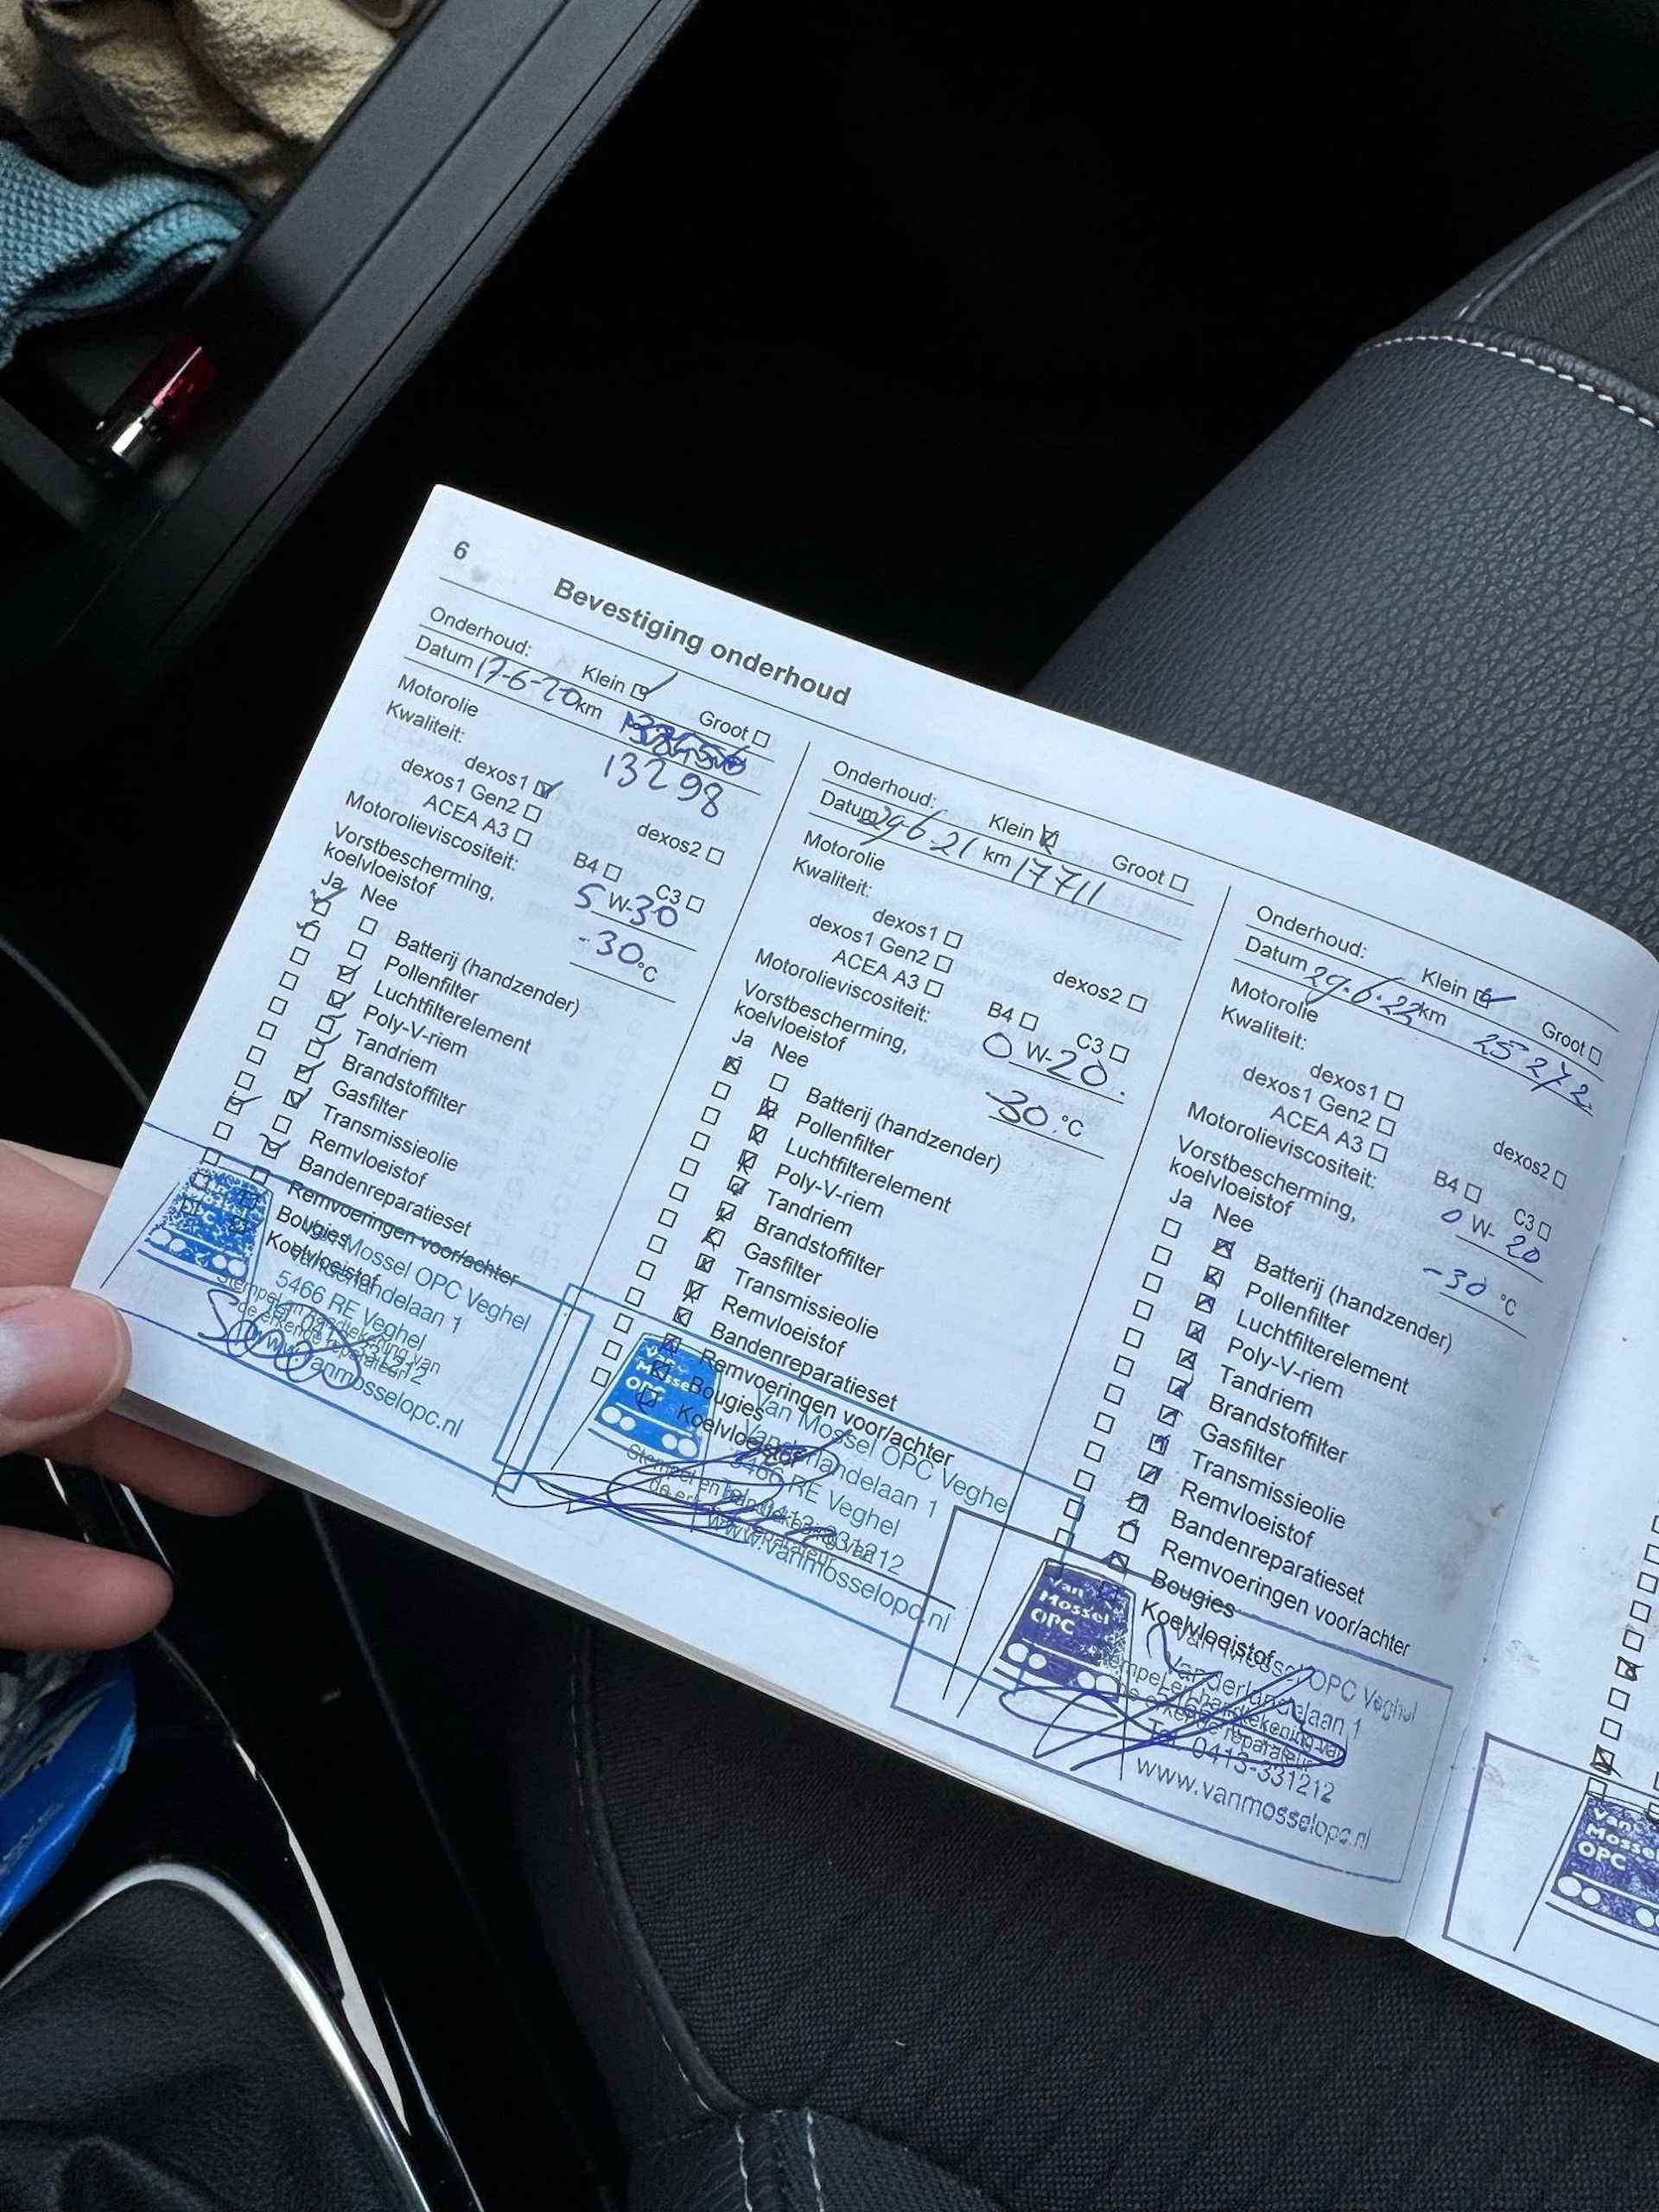 6
Bevestiging onderhoud
Onderhoud: Klein Groot
Datum 17-6-20 km
13298
Motorolie
Kwaliteit:
dexos1 dexos2
dexos1 Gen2
ACEA A3 B4 C3
Motorolieviscositeit: 5 W-30
Vorstbescherming,
koelvloeistof -30 °C
Ja Nee
Batterij (handzender)
Pollenfilter
Luchtfilterelement
Poly-V-riem
Tandriem
Brandstoffilter
Gasfilter
Transmissieolie
Remvloeistof
Bandenreparatieset
Remvoeringen voor/achter
Bougies
Koelvloeistof
Stempel en handtekening van
de erkende reparateur
Van Mossel OPC Veghel
Vanderlandelaan 1
5466 RE Veghel
www.vanmosselopc.nl
Onderhoud: Klein Groot
Datum 29-6-21 km 17711
Motorolie
Kwaliteit:
dexos1 dexos2
dexos1 Gen2
ACEA A3 B4 C3
Motorolieviscositeit: 0 W-20
Vorstbescherming,
koelvloeistof -30 °C
Ja Nee
Batterij (handzender)
Pollenfilter
Luchtfilterelement
Poly-V-riem
Tandriem
Brandstoffilter
Gasfilter
Transmissieolie
Remvloeistof
Bandenreparatieset
Remvoeringen voor/achter
Bougies
Koelvloeistof
Stempel en handtekening van
de erkende reparateur
Van
Mossel
OPC
Van Mossel OPC Veghel
Vanderlandelaan 1
5466 RE Veghel
Tel. 0413-331212
www.vanmosselopc.nl
Onderhoud: Klein Groot
Datum 29-6-22 km 25272
Motorolie
Kwaliteit:
dexos1 dexos2
dexos1 Gen2
ACEA A3 B4 C3
Motorolieviscositeit: 0 W-20
Vorstbescherming,
koelvloeistof -30 °C
Ja Nee
Batterij (handzender)
Pollenfilter
Luchtfilterelement
Poly-V-riem
Tandriem
Brandstoffilter
Gasfilter
Transmissieolie
Remvloeistof
Bandenreparatieset
Remvoeringen voor/achter
Bougies
Koelvloeistof
Stempel en handtekening van
de erkende reparateur
Van
Mossel
OPC
Van Mossel OPC Veghel
Vanderlandelaan 1
Tel. 0413-331212
www.vanmosselopc.nl
Van
Mossel
OPC